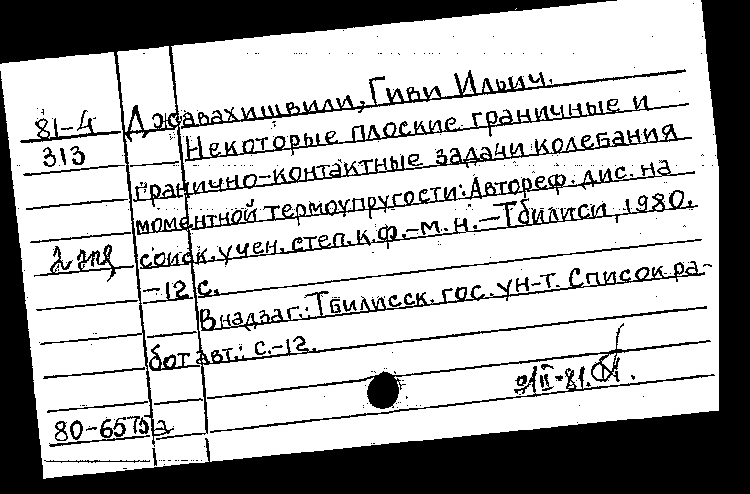 81-4 Джавахишвили, Гиви Ильич.
313 Некоторые плоские граничные и
гранично-контактные задачи колебания
моментной термоупругости: Автореф. дис. на
2 экз соиск. учен. степ. к.ф.-м.н. – Тбилиси, 1980.
-12 с.
В надзаг.: Тбилисск. гос. ун-т. Список ра-
бот авт.: с.-12.
II-81.
80-6575а